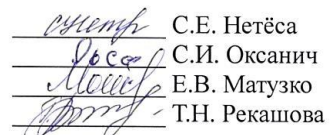 С.Е. Нетёса
С.И. Оксанич
Е.В. Матузко
Т.Н. Рекашова